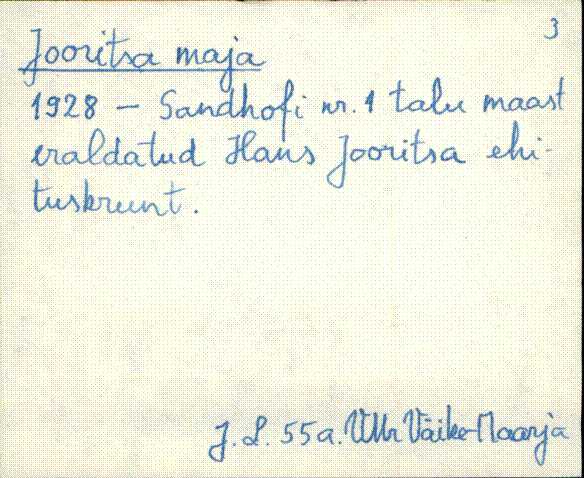 3
Jooritsa maja
1928 – Sandhofi nr. 1 talu maast
eraldatud Hans Jooritsa ehi-
tuskrunt.
J. L. 55a. Väike-Maarja